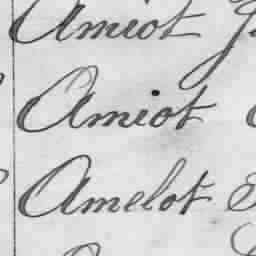 Amiot
Amiot
Amelot